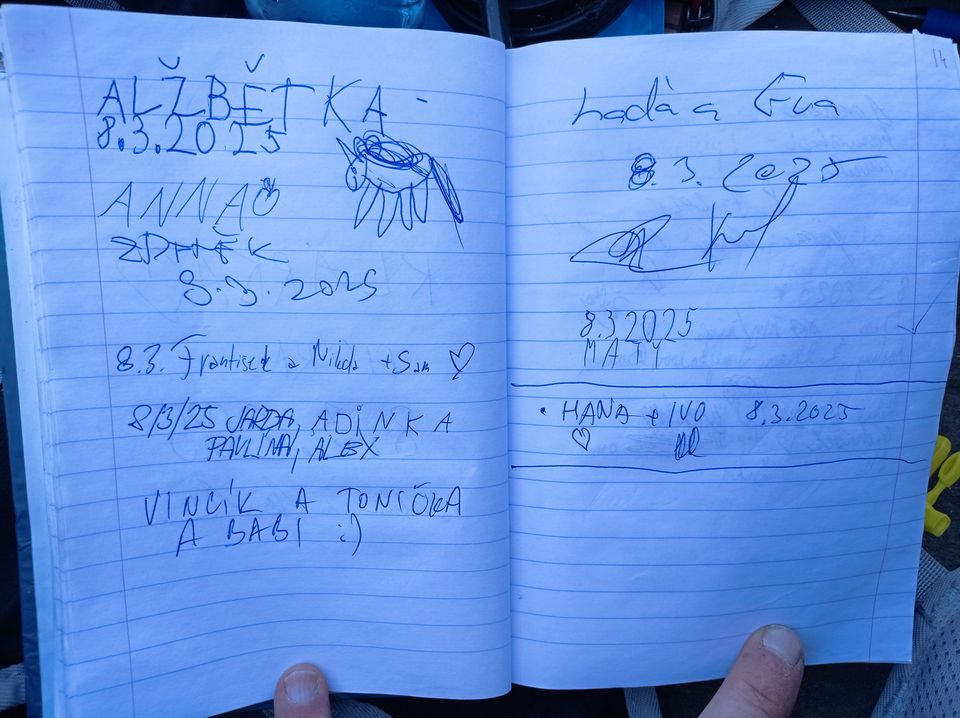 ALŽBĚTKA -
8.3.2025
ANNA
ZDNĚK
8.3.2025
8.3. František a Nikola + Sam ♡
8/3/25 JARDA, ADINKA
PAVLINA, ALEX
VINCÍK A TONIČKA
A BABI :)
14
Laďa a Eva
8.3.2025
8.3.2025
MATY
• HANA + IVO 8.3.2025
♡